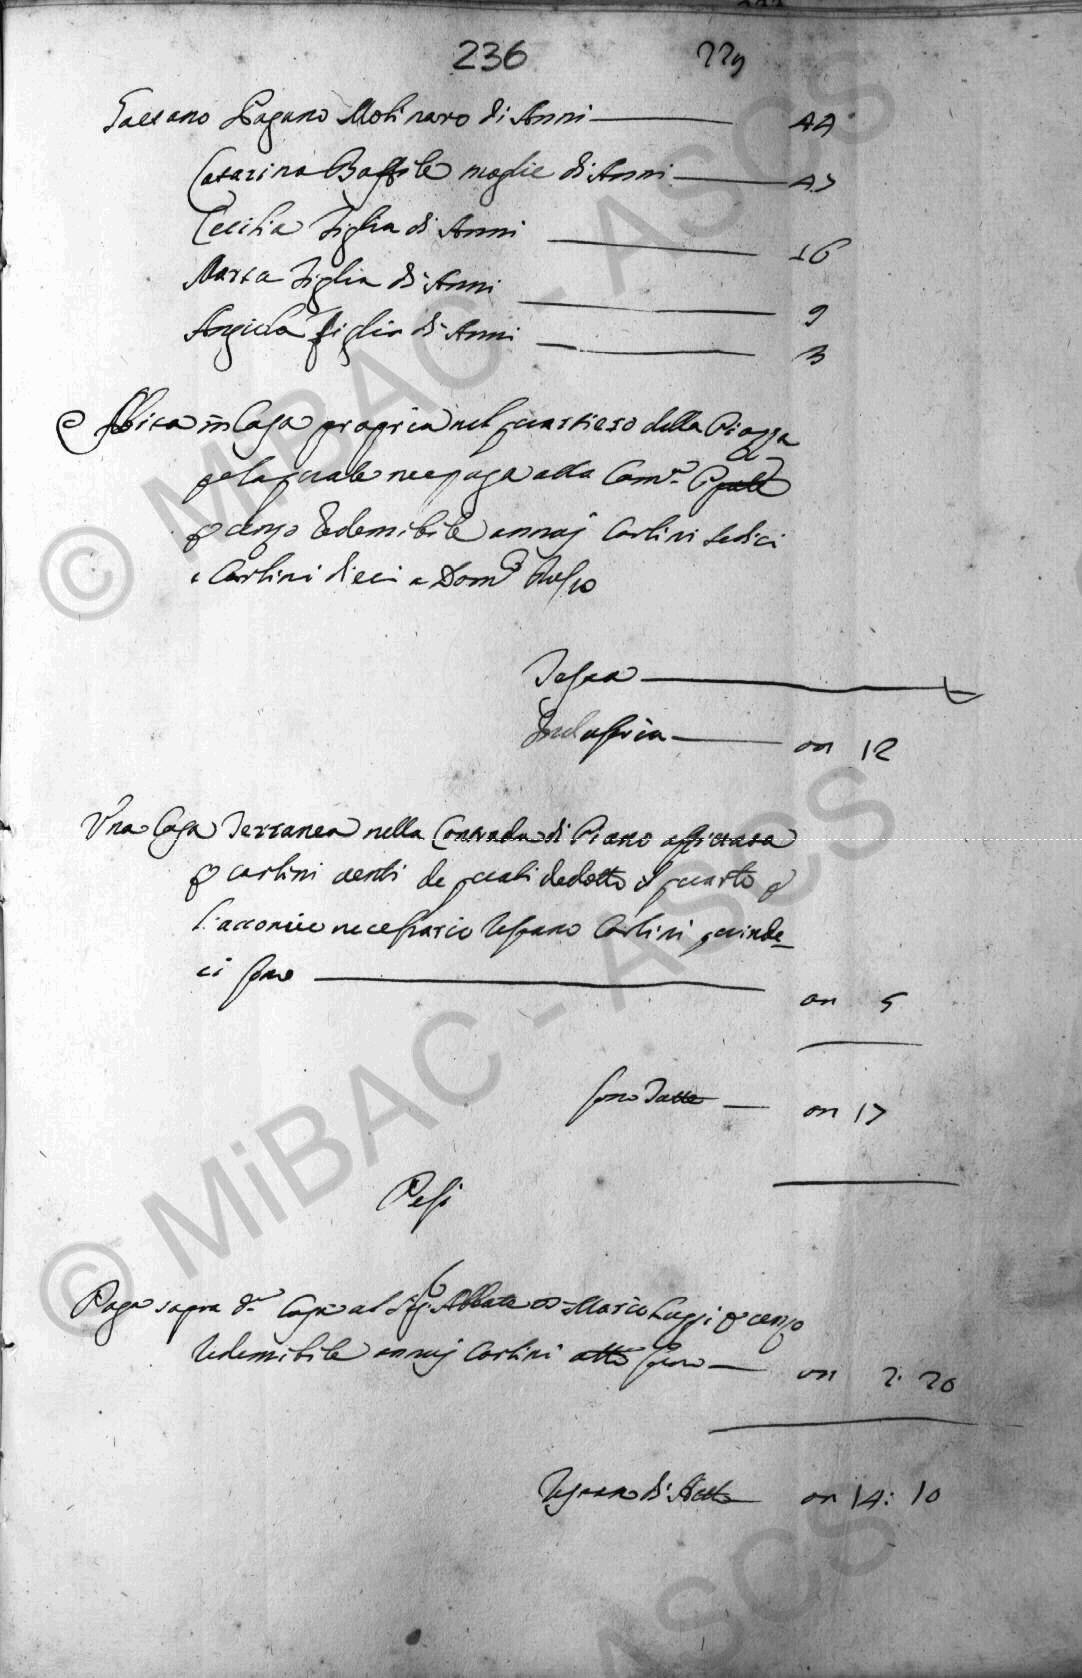 236 229
Gaetano Pagano Molinaro di Anni 44
Catarina Baffile moglie di Anni 47
Cecilia figlia di Anni 16
Marta figlia di Anni 9
Angiola figlia di Anni 3
Abita in Casa propria nel quartiero della Piazza
p la quale ne paga alla Cam.ª
p cenzo redemibile annuj Carlini sedici
e Carlini dieci a Dom.º Russo
Testa
Industria on 12
Una Casa Terranea nella Contrada di Piano affittata
p carlini venti de quali dedotto il quarto p
l'acconcio necessario restano Carlini quinde=
ci sono on 5
sono Tutte on 17
Pesi
Paga sopra d.ª Casa al Sig. Abbate D. Mario Luzzi p cenzo
redemibile annuj Carlini otto sono on 2. 20
restano di Netto on 14: 10
© MiBAC - ASCS
© MiBAC - ASCS
ASCS